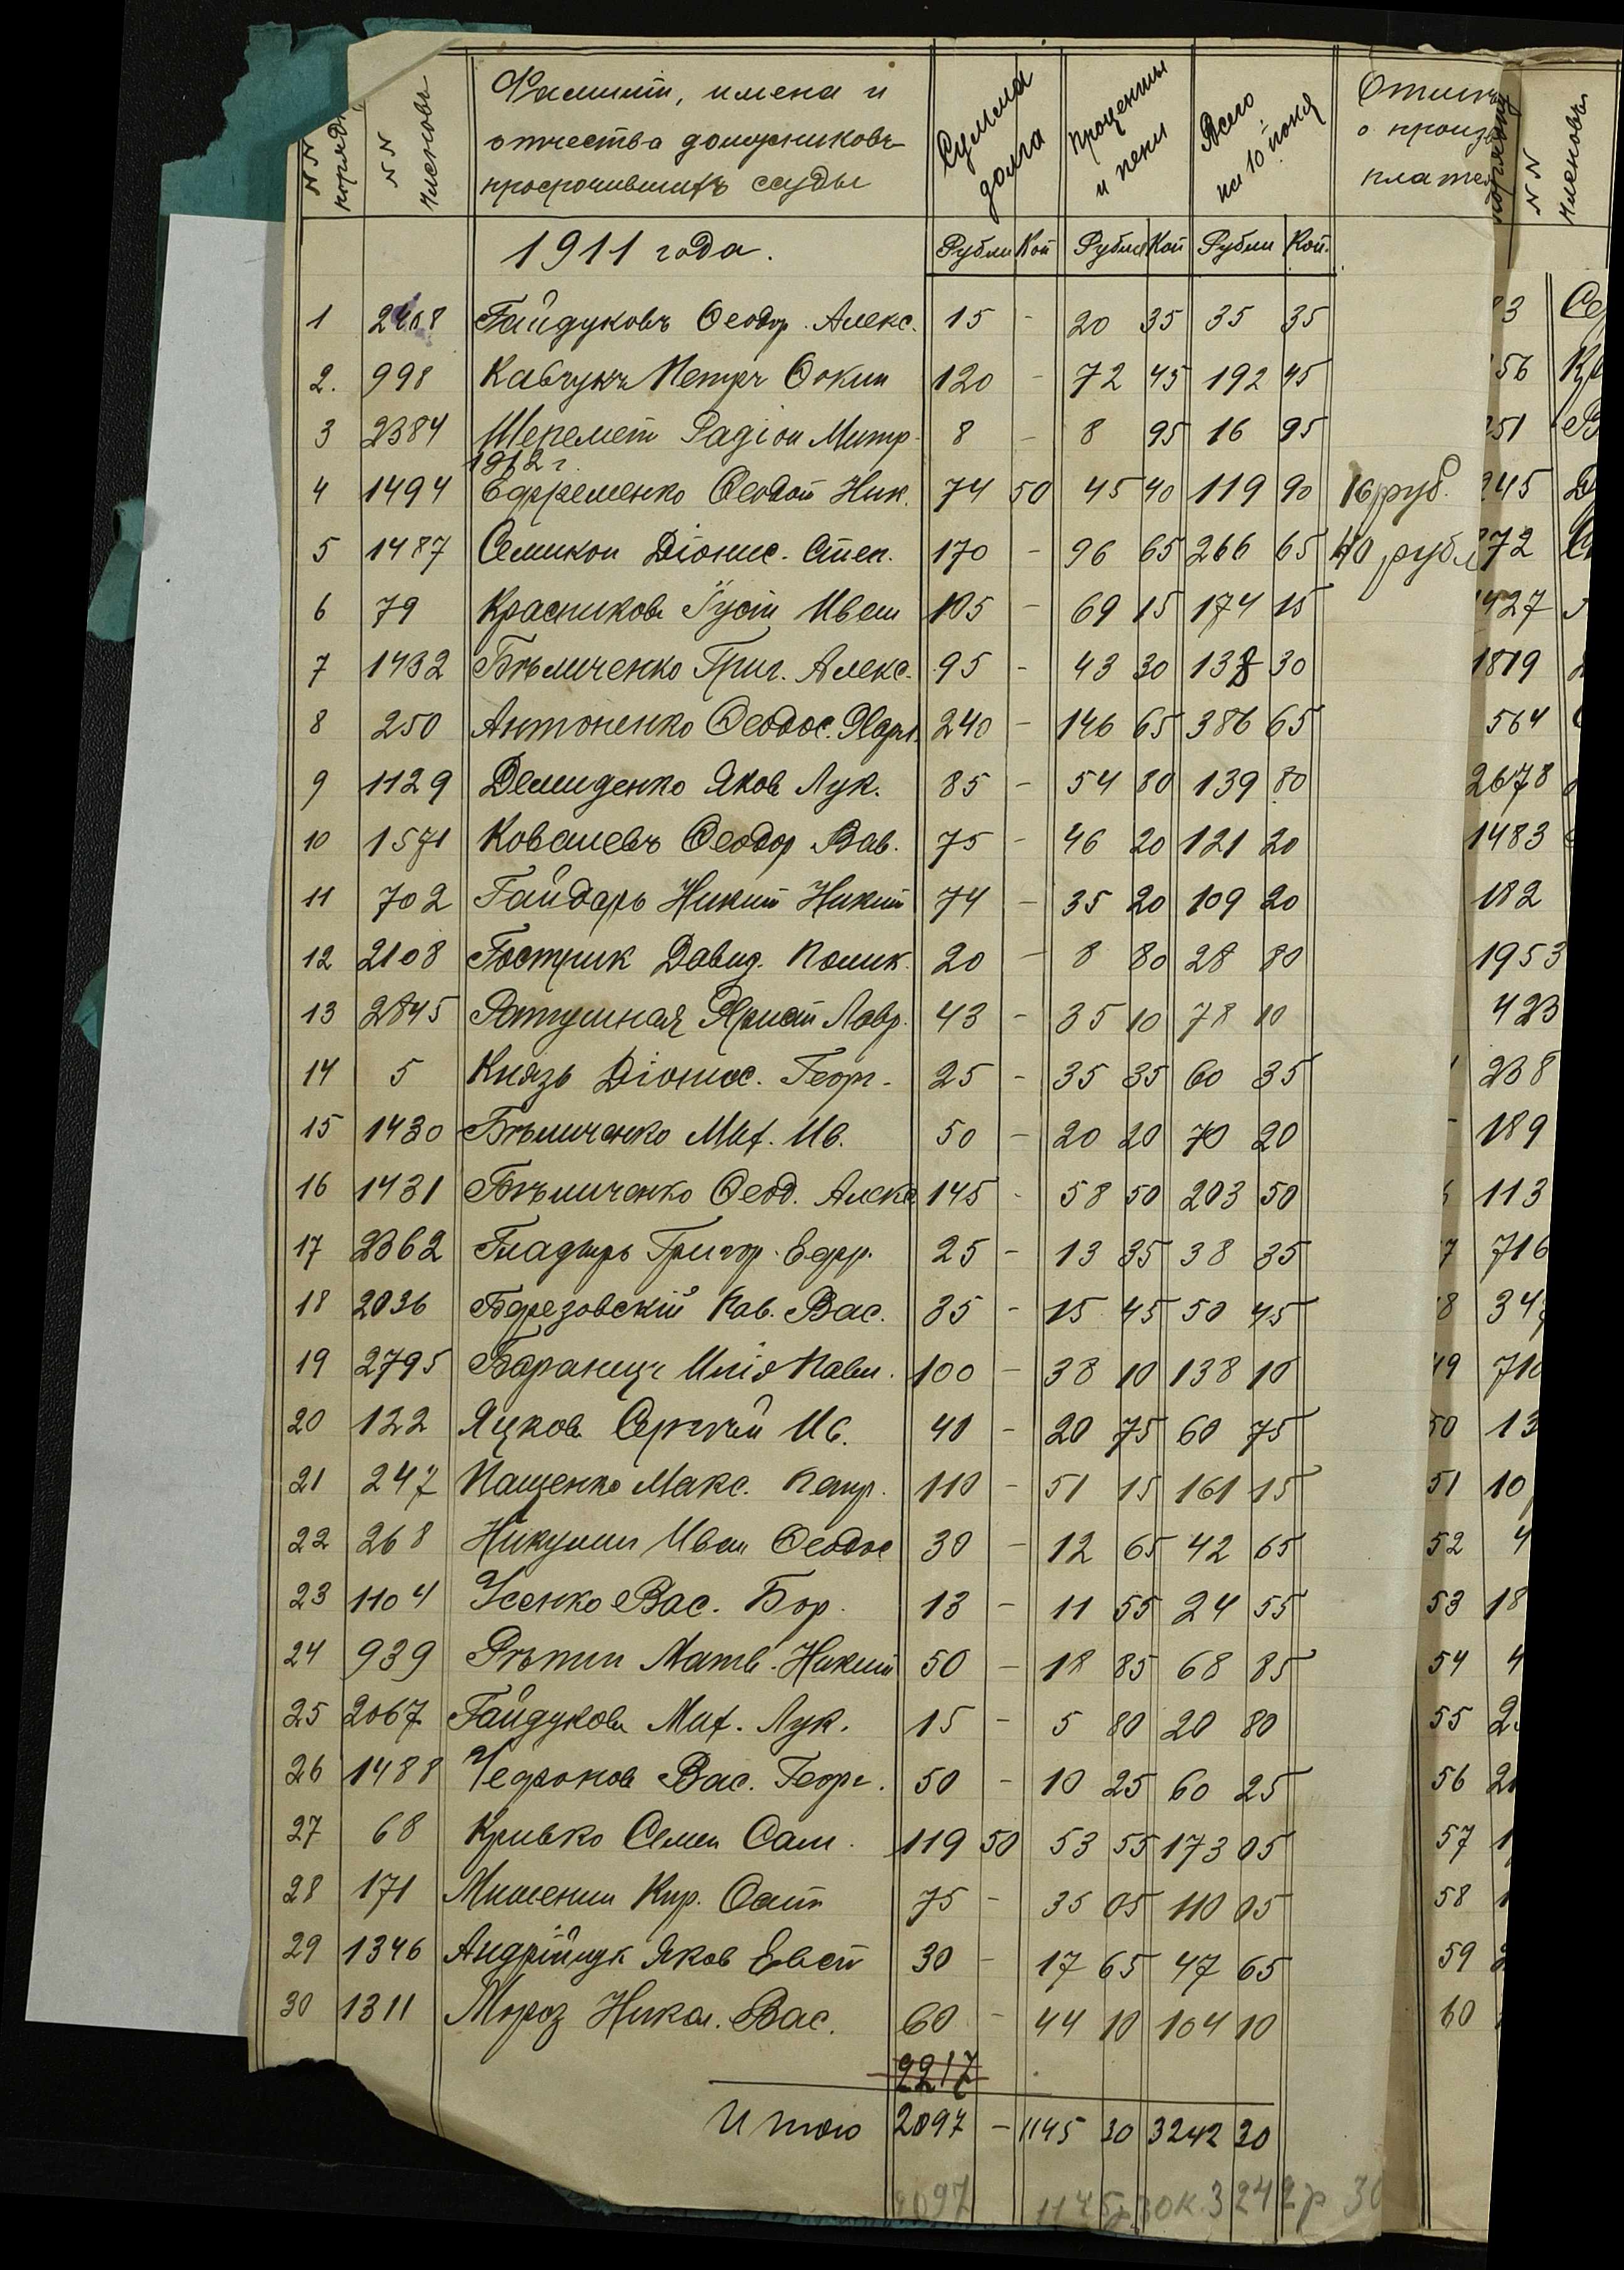 NN порядк.
NN членовъ
Фамиліи, имена и
отчества должниковъ
просрочившихъ ссуды
Сумма долга
Проценты и пени
Всего на 10 іюня
Отмѣтк
о произв
плате
NN
членовъ
1911 года.
Рубли Коп Рубли Коп Рубли Коп.
1 2408 Гайдуковъ Ѳеодор. Алекс. 15 - 20 35 35 35
2. 998 Кавчукъ Петръ 120 - 72 45 192 45
3 2384 Шеремет Радіон Митр. 8 - 8 95 16 95
1912 г.
4 1494 Ефременко Ѳеодот Ник. 74 50 45 40 119 90 16 руб.
5 1487 Семикоп Діонис. Степ. 170 - 96 65 266 65 40 рубл
6 79 Красников Густ Иван 105 - 69 15 174 15
7 1432 Бѣличенко Григ. Алекс. 95 - 43 30 138 30
8 250 Антоненко Ѳеодос. Харл. 240 - 146 65 386 65
9 1129 Демиденко Яков Лук. 85 - 54 80 139 80
10 1571 Ковалевъ Ѳеодор Вав. 75 - 46 20 121 20
11 702 Гайдарь Никит Никит 74 - 35 20 109 20
12 2108 Гострик Давид. Полик. 20 - 8 80 28 80
13 2845 Ратушная Христ Лавр. 43 - 35 10 78 10
14 5 Князь Діонис. Георг. 25 - 35 35 60 35
15 1430 Бѣличенко Мих. Ив. 50 - 20 20 70 20
16 1431 Бѣличенко Ѳеод. Алекс 145 - 58 50 203 50
17 2362 Гладырь Григор. Ефр. 25 - 13 35 38 35
18 2036 Березовскій Пав. Вас. 35 - 15 45 50 45
19 2795 Баранецъ Илія Павл. 100 - 38 10 138 10
20 122 Яцков Сергѣй Ив. 40 - 20 75 60 75
21 247 Пащенко Макс. Петр. 110 - 51 15 161 15
22 268 Никулин Иван Ѳеодос 30 - 12 65 42 65
23 1104 Усенко Вас. Бор. 13 - 11 55 24 55
24 939 Рѣпин Матв. Никит 50 - 18 85 68 85
25 2067 Гайдуков Мих. Лук. 15 - 5 80 20 80
26 1488 Чефонов Вас. Георг. 50 - 10 25 60 25
27 68 Кривко Семен Сам. 119 50 53 55 173 05
28 171 Мишенин Кир. 75 - 35 05 110 05
29 1346 Андрійчук Яков Евст 30 - 17 65 47 65
30 1311 Мороз Никол. Вас. 60 - 44 10 104 10
2217
Итого 2097 - 1145 30 3242 30
2097 1145р 30к. 3242р 30
3 Се
56
251
245
72
427
1819
564
2678
1483
182
1953
423
238
189
113
7 716
8 34
49 710
50 13
51 10
52 4
53 18
54 4
55 2
56 2
57 1
58 1
59 2
60